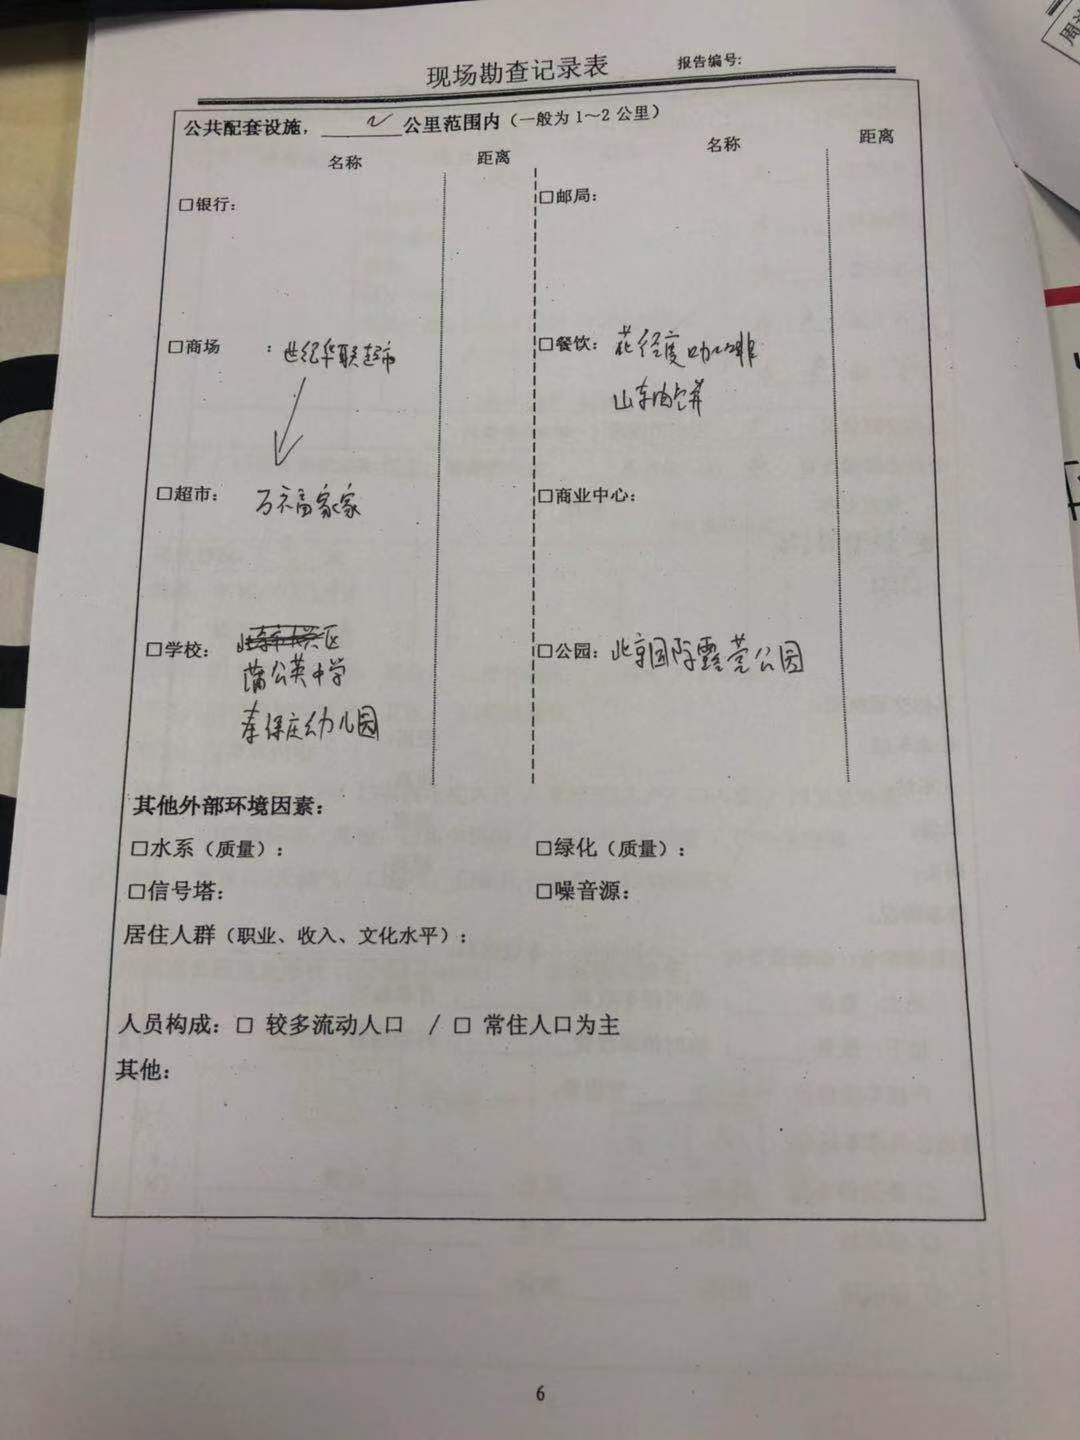 现场勘查记录表 报告编号:
公共配套设施, 2 公里范围内(一般为1~2公里)
名称 距离 名称 距离
□银行: □邮局:
□商场 : 世纪华联超市 □餐饮: 花径度咖啡
山东油饼
□超市: 万福家家 □商业中心:
□学校: 区 □公园: 北京国际露营公园
蒲公英中学
保庄幼儿园
其他外部环境因素:
□水系(质量): □绿化(质量):
□信号塔: □噪音源:
居住人群(职业、收入、文化水平):
人员构成: □ 较多流动人口 / □ 常住人口为主
其他:
6